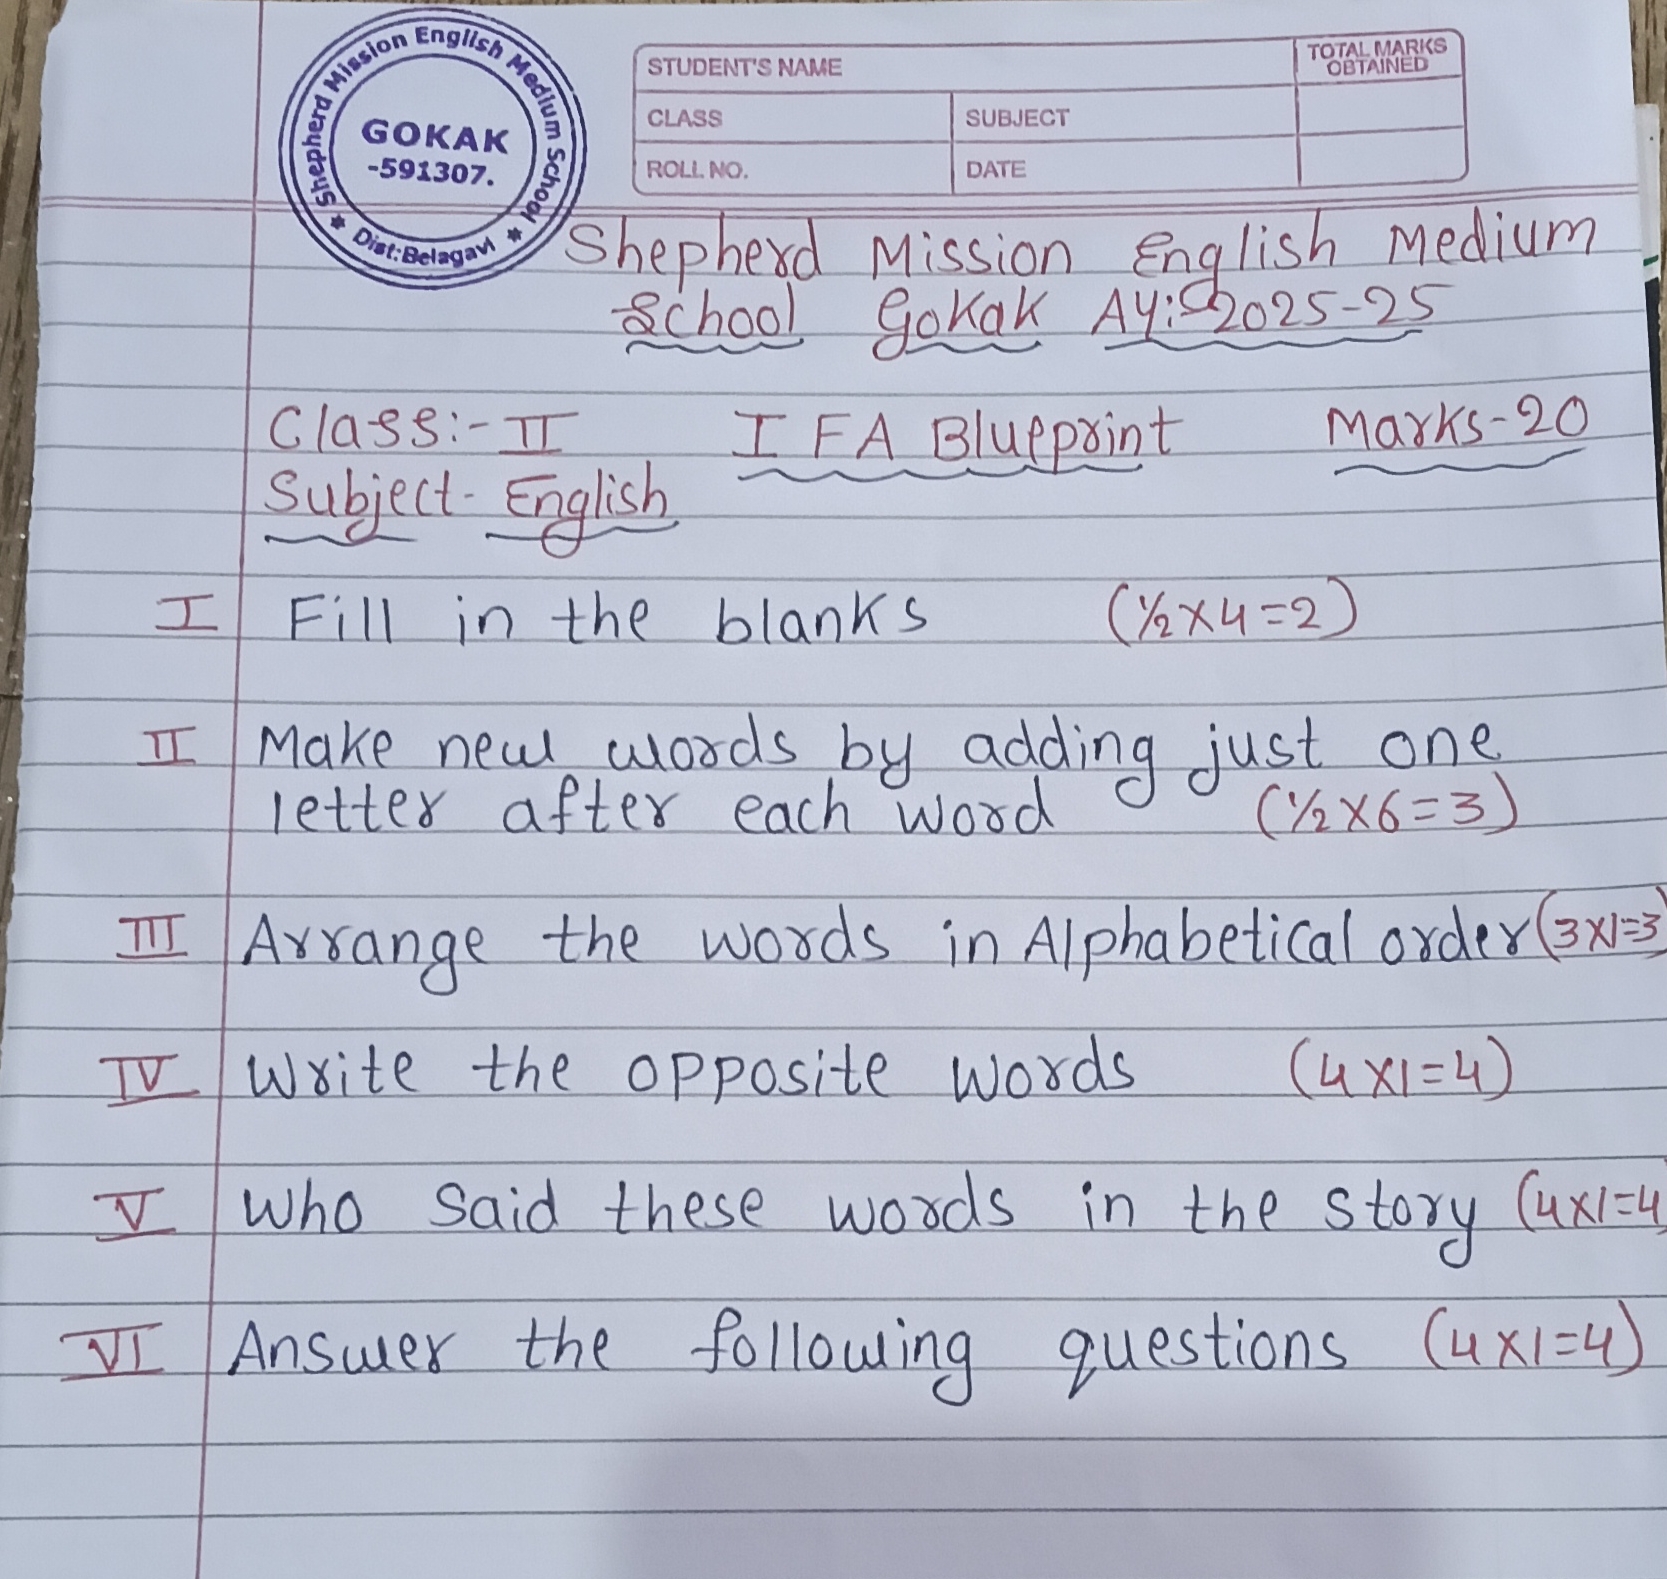 Shepherd Mission English Medium School
GOKAK
-591307.
* Dist:Belagavi *
STUDENT'S NAME
TOTAL MARKS
OBTAINED
CLASS
SUBJECT
ROLL NO.
DATE
Shepherd Mission English Medium
School Gokak AY:- 2025-25
Class:- II I FA Blueprint Marks-20
Subject- English
I Fill in the blanks (½X4=2)
II Make new words by adding just one
letter after each word (½X6=3)
III Arrange the words in Alphabetical order (3X1=3)
IV Write the opposite words (4X1=4)
V Who said these words in the story (4X1=4)
VI Answer the following questions (4X1=4)